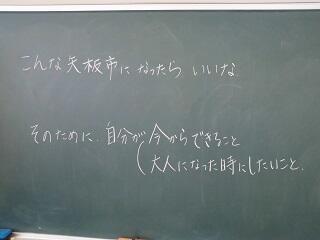 こんな矢板市になったら いいな.
そのために. 自分が今からできること
(大人になった時にしたいこと.